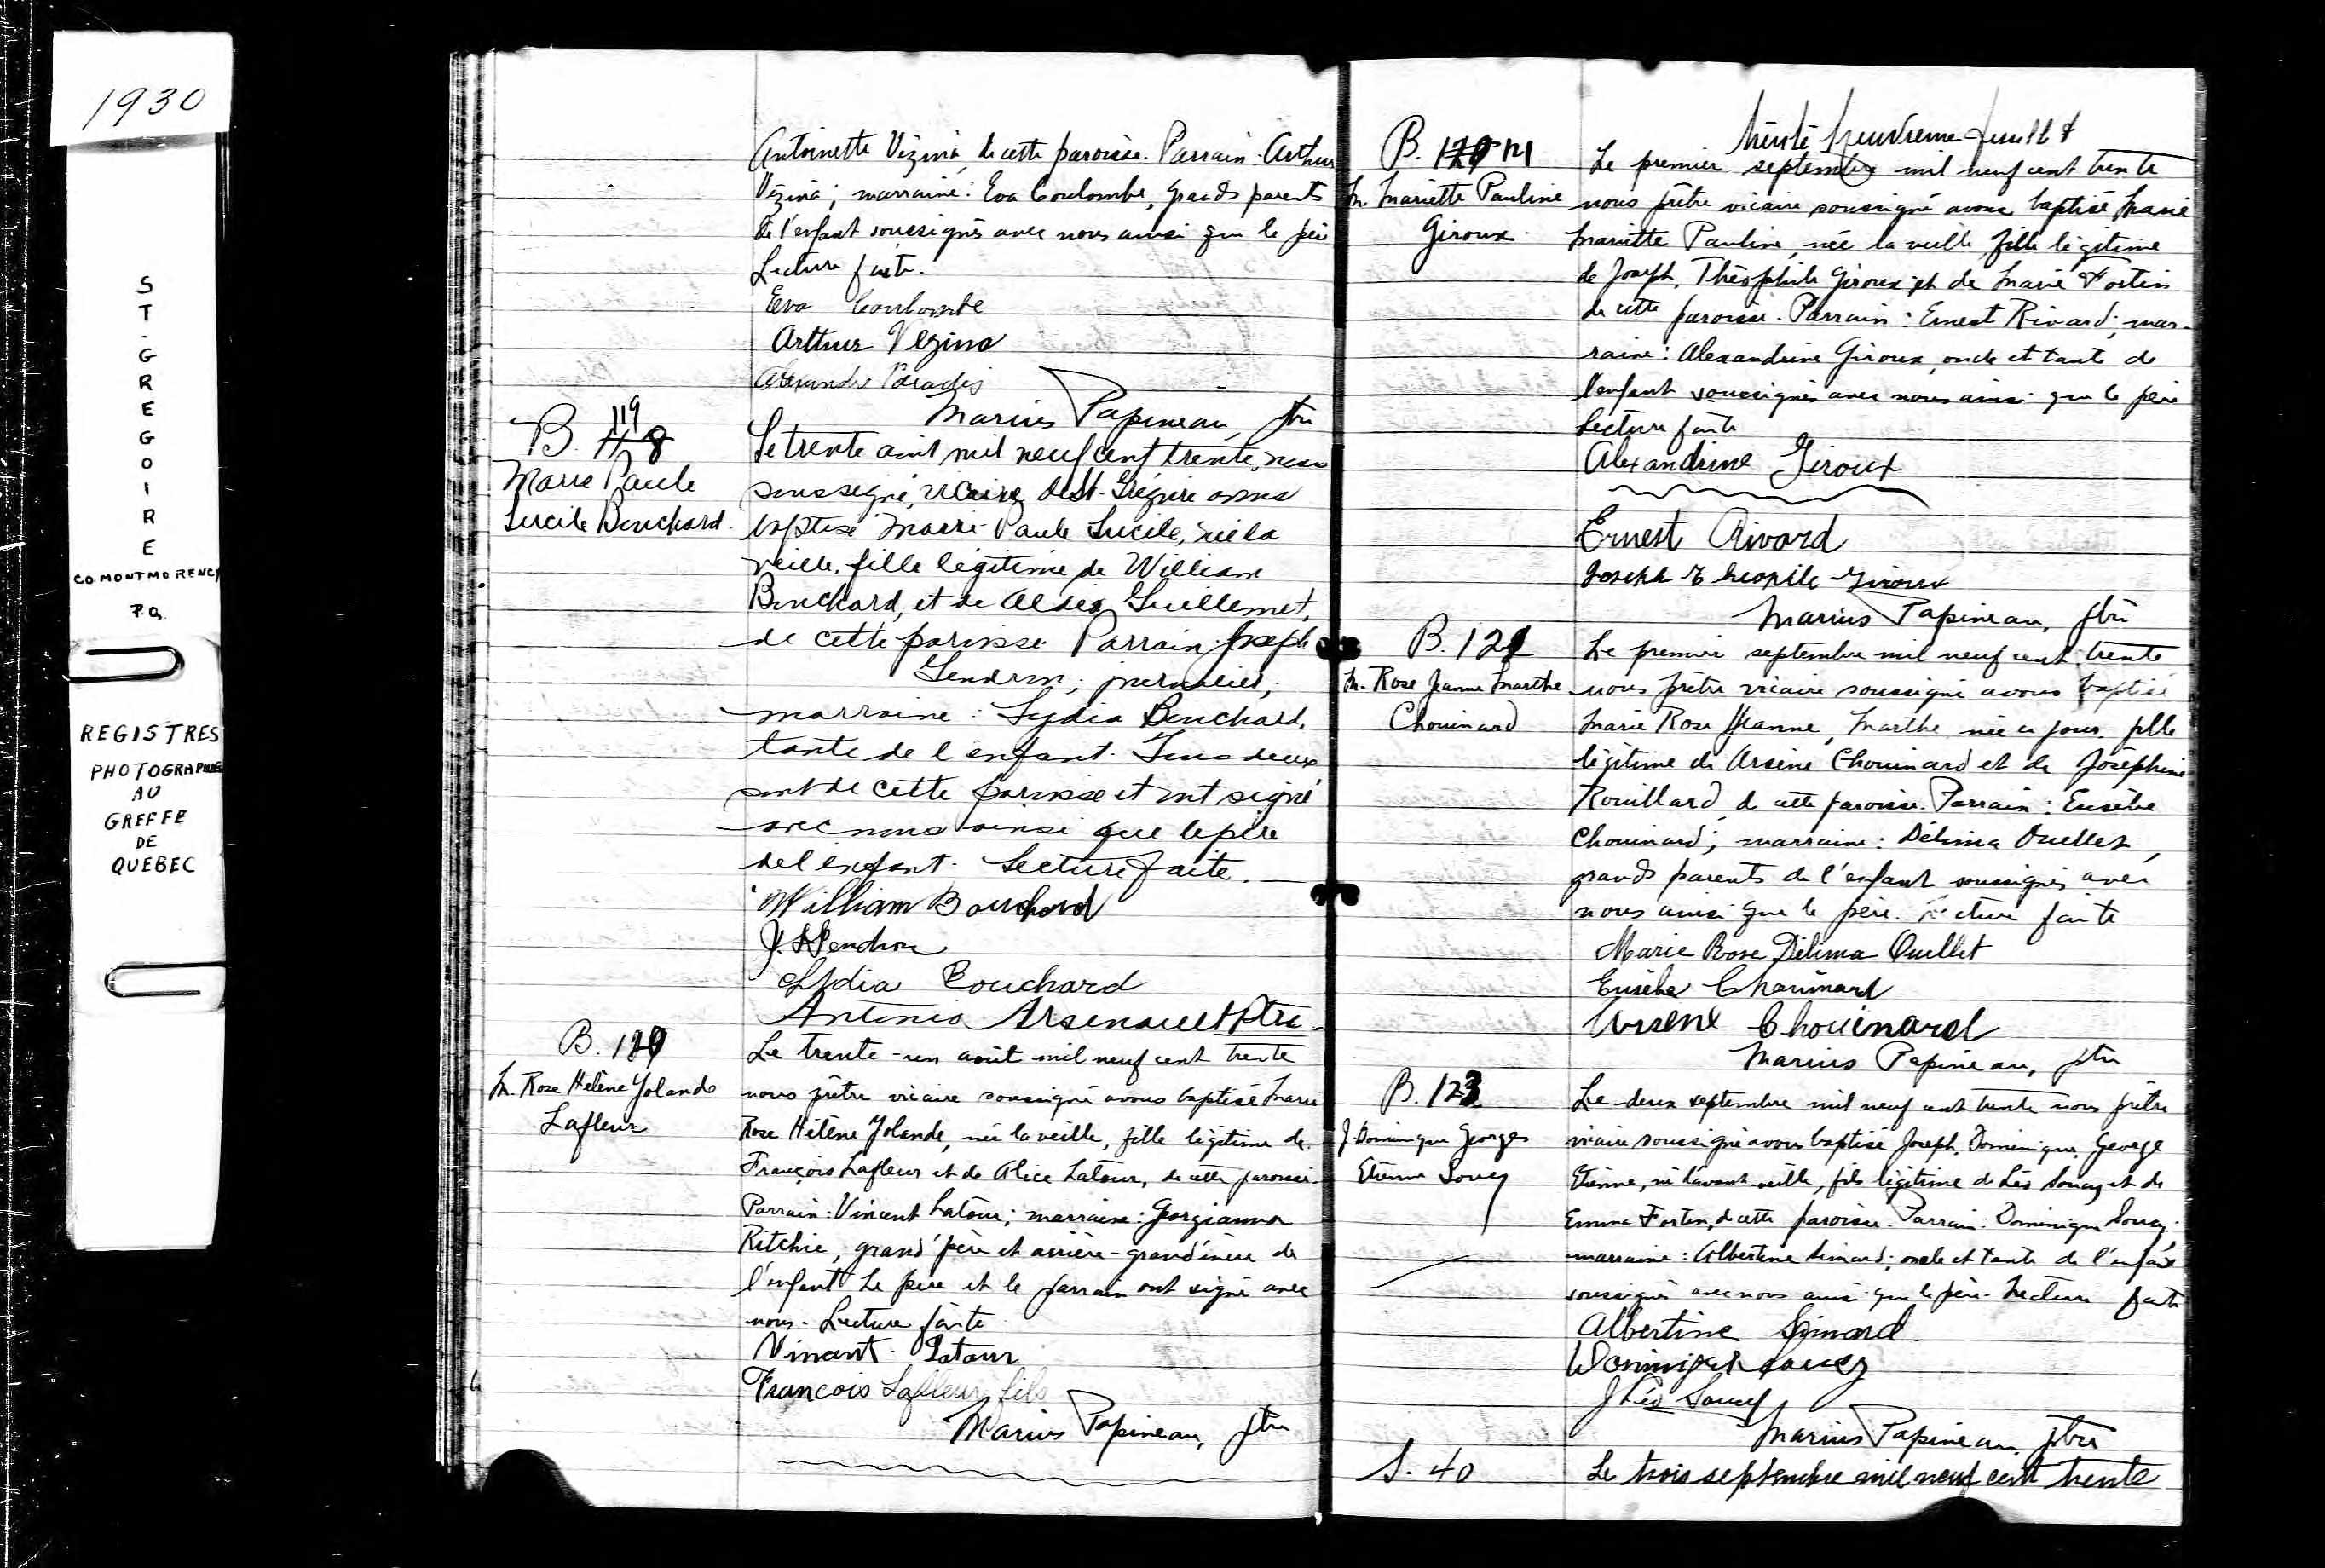 1930
ST-GREGOIRE
CO. MONTMORENCY
P.Q.
REGISTRES
PHOTOGRAPHIES
AU
GREFFE
DE
QUEBEC
Antoinette Vézina, de cette paroisse. Parrain: Arthur
Vézina; marraine: Eva Coulombe, grands parents
de l'enfant soussignés avec nous ainsi que le père
Lecture faite.
Eva Coulombe
Arthur Vezina
Alexandre Paradis
Marius Papineau, ptre
B. 118 119
Marie Paule
Lucile Bouchard.
Le trente août mil neuf cent trente, nous
soussigné, vicaire de St-Grégoire avons
baptisé Marie Paule Lucile, née la
veille, fille légitime de William
Bouchard, et de Guillemet,
de cette paroisse. Parrain Joseph
Gendron, journalier;
marraine: Lydia Bouchard,
tante de l'enfant. Tous deux
sont de cette paroisse et ont signé
avec nous ainsi que le père
de l'enfant. Lecture faite.
William Bouchard
J. Gendron
Lydia Bouchard
Antonio Arsenault Ptre
B. 120
M. Rose Hélène Yolande
Lafleur
Le trente-un août mil neuf cent trente
nous prêtre vicaire soussigné avons baptisé Marie
Rose Hélène Yolande, née la veille, fille légitime de
François Lafleur et de Alice Latour, de cette paroisse.
Parrain: Vincent Latour; marraine: Georgianna
Ritchie, grand'père et arrière-grand'mère de
l'enfant Le père et le parrain ont signé avec
nous. Lecture faite
Vincent Latour
Francois Lafleur fils
Marius Papineau, ptre
B. 120 121
M. Mariette Pauline
Giroux
Le premier septembre mil neuf cent trente
nous prêtre vicaire soussigné avons baptisé Marie
Mariette Pauline, née la veille fille légitime
de Joseph, Théophile Giroux et de Marie Fortin
de cette paroisse. Parrain: Ernest Rivard; mar-
raine: Alexandrine Giroux, oncle et tante de
l'enfant soussignés avec nous ainsi que le père
Lecture faite
Alexandrine Giroux
Ernest Rivard
Joseph Theophile Giroux
Marius Papineau, ptre
B. 122
M. Rose Jeanne Marthe
Chouinard
Le premier septembre mil neuf cent trente
nous prêtre vicaire soussigné avons baptisé
Marie Rose Jeanne, Marthe née ce jour, fille
légitime de Arsène Chouinard et de Joséphine
Rouillard, de cette paroisse. Parrain: Eusèbe
Chouinard; marraine: Délima Ouellet,
grands parents de l'enfant soussignés avec
nous ainsi que le père. Lecture faite
Marie Rose Délima Ouellet
Eusèbe Chouinard
Arsene Chouinard
Marius Papineau, ptre
B. 123
J. Dominique Georges
Etienne Soucy
Le deux septembre mil neuf cent trente nous prêtre
vicaire soussigné avons baptisé Joseph, Dominique, George
Etienne, né l'avant-veille, fils légitime de Léo Soucy et de
Emma Fortin, de cette paroisse. Parrain: Dominique Soucy;
marraine: Albertine Simard; oncle et tante de l'enfant
soussignés avec nous ainsi que le père. Lecture faite
Albertine Simard
Dominique Soucy
J Léo Soucy
Marius Papineau, ptre
S. 40
Le trois septembre mil neuf cent trente